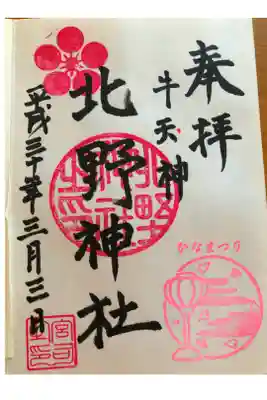 奉拝
牛天神
北野神社
平成三十年三月三日
ひなまつり